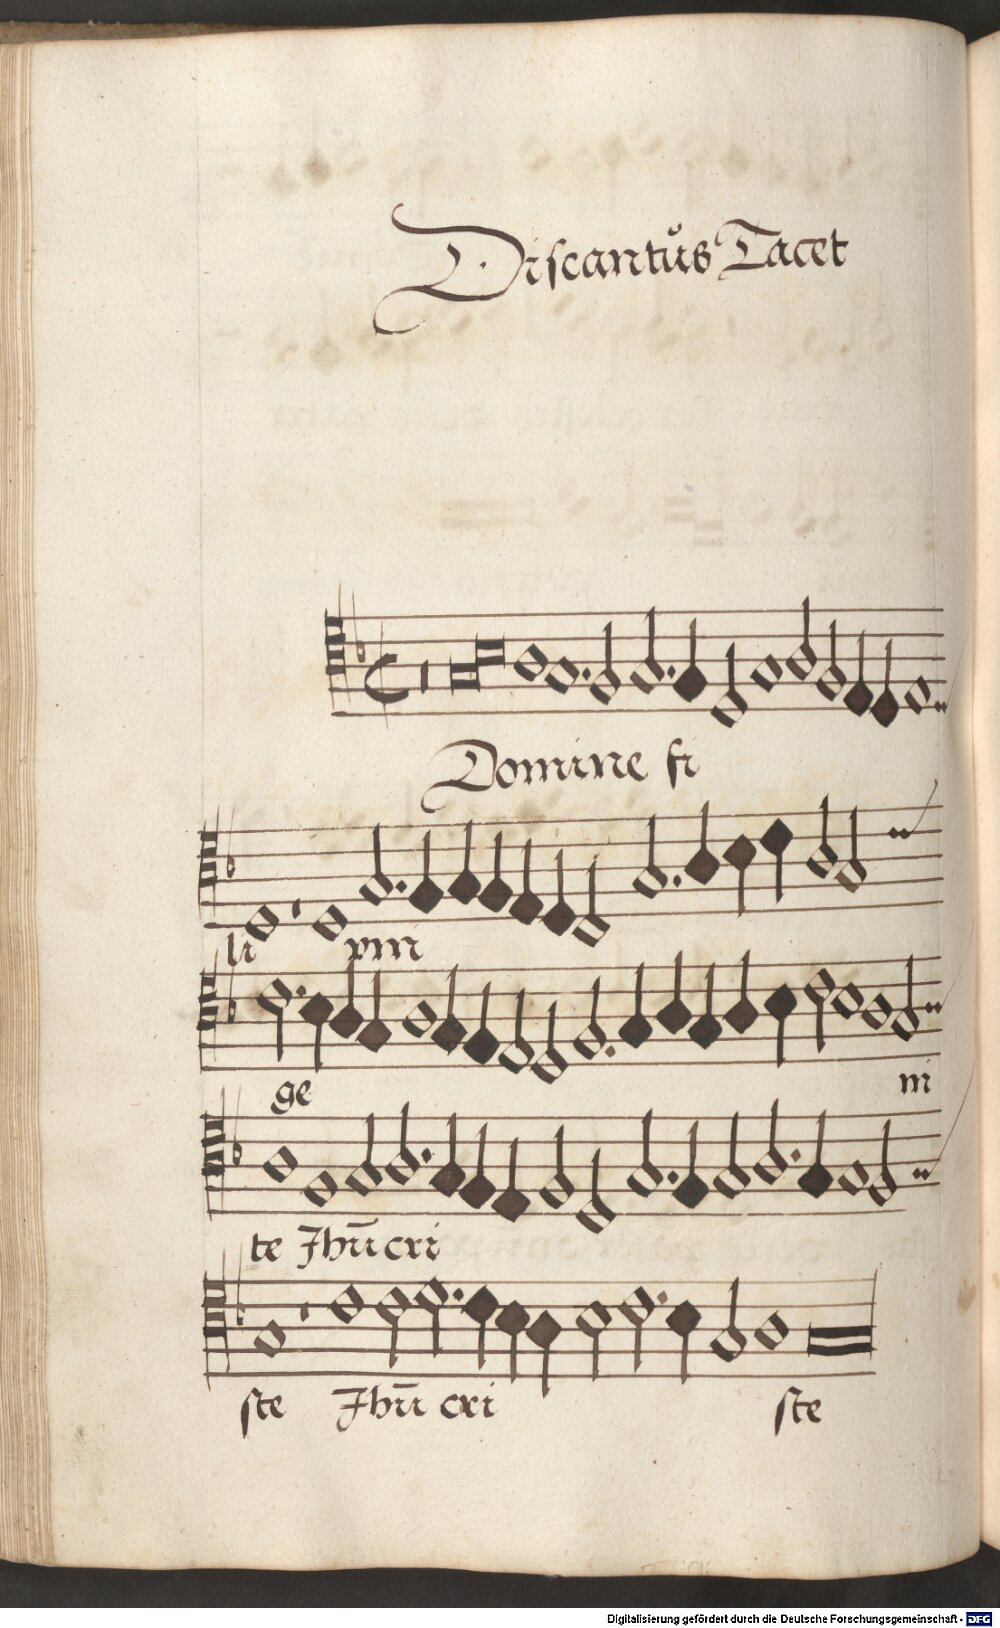 Discantus Tacet
Domine fi
li vni
ge ni
te Jhū cri
ste Jhū cri ste
Digitalisierung gefördert durch die Deutsche Forschungsgemeinschaft - DFG